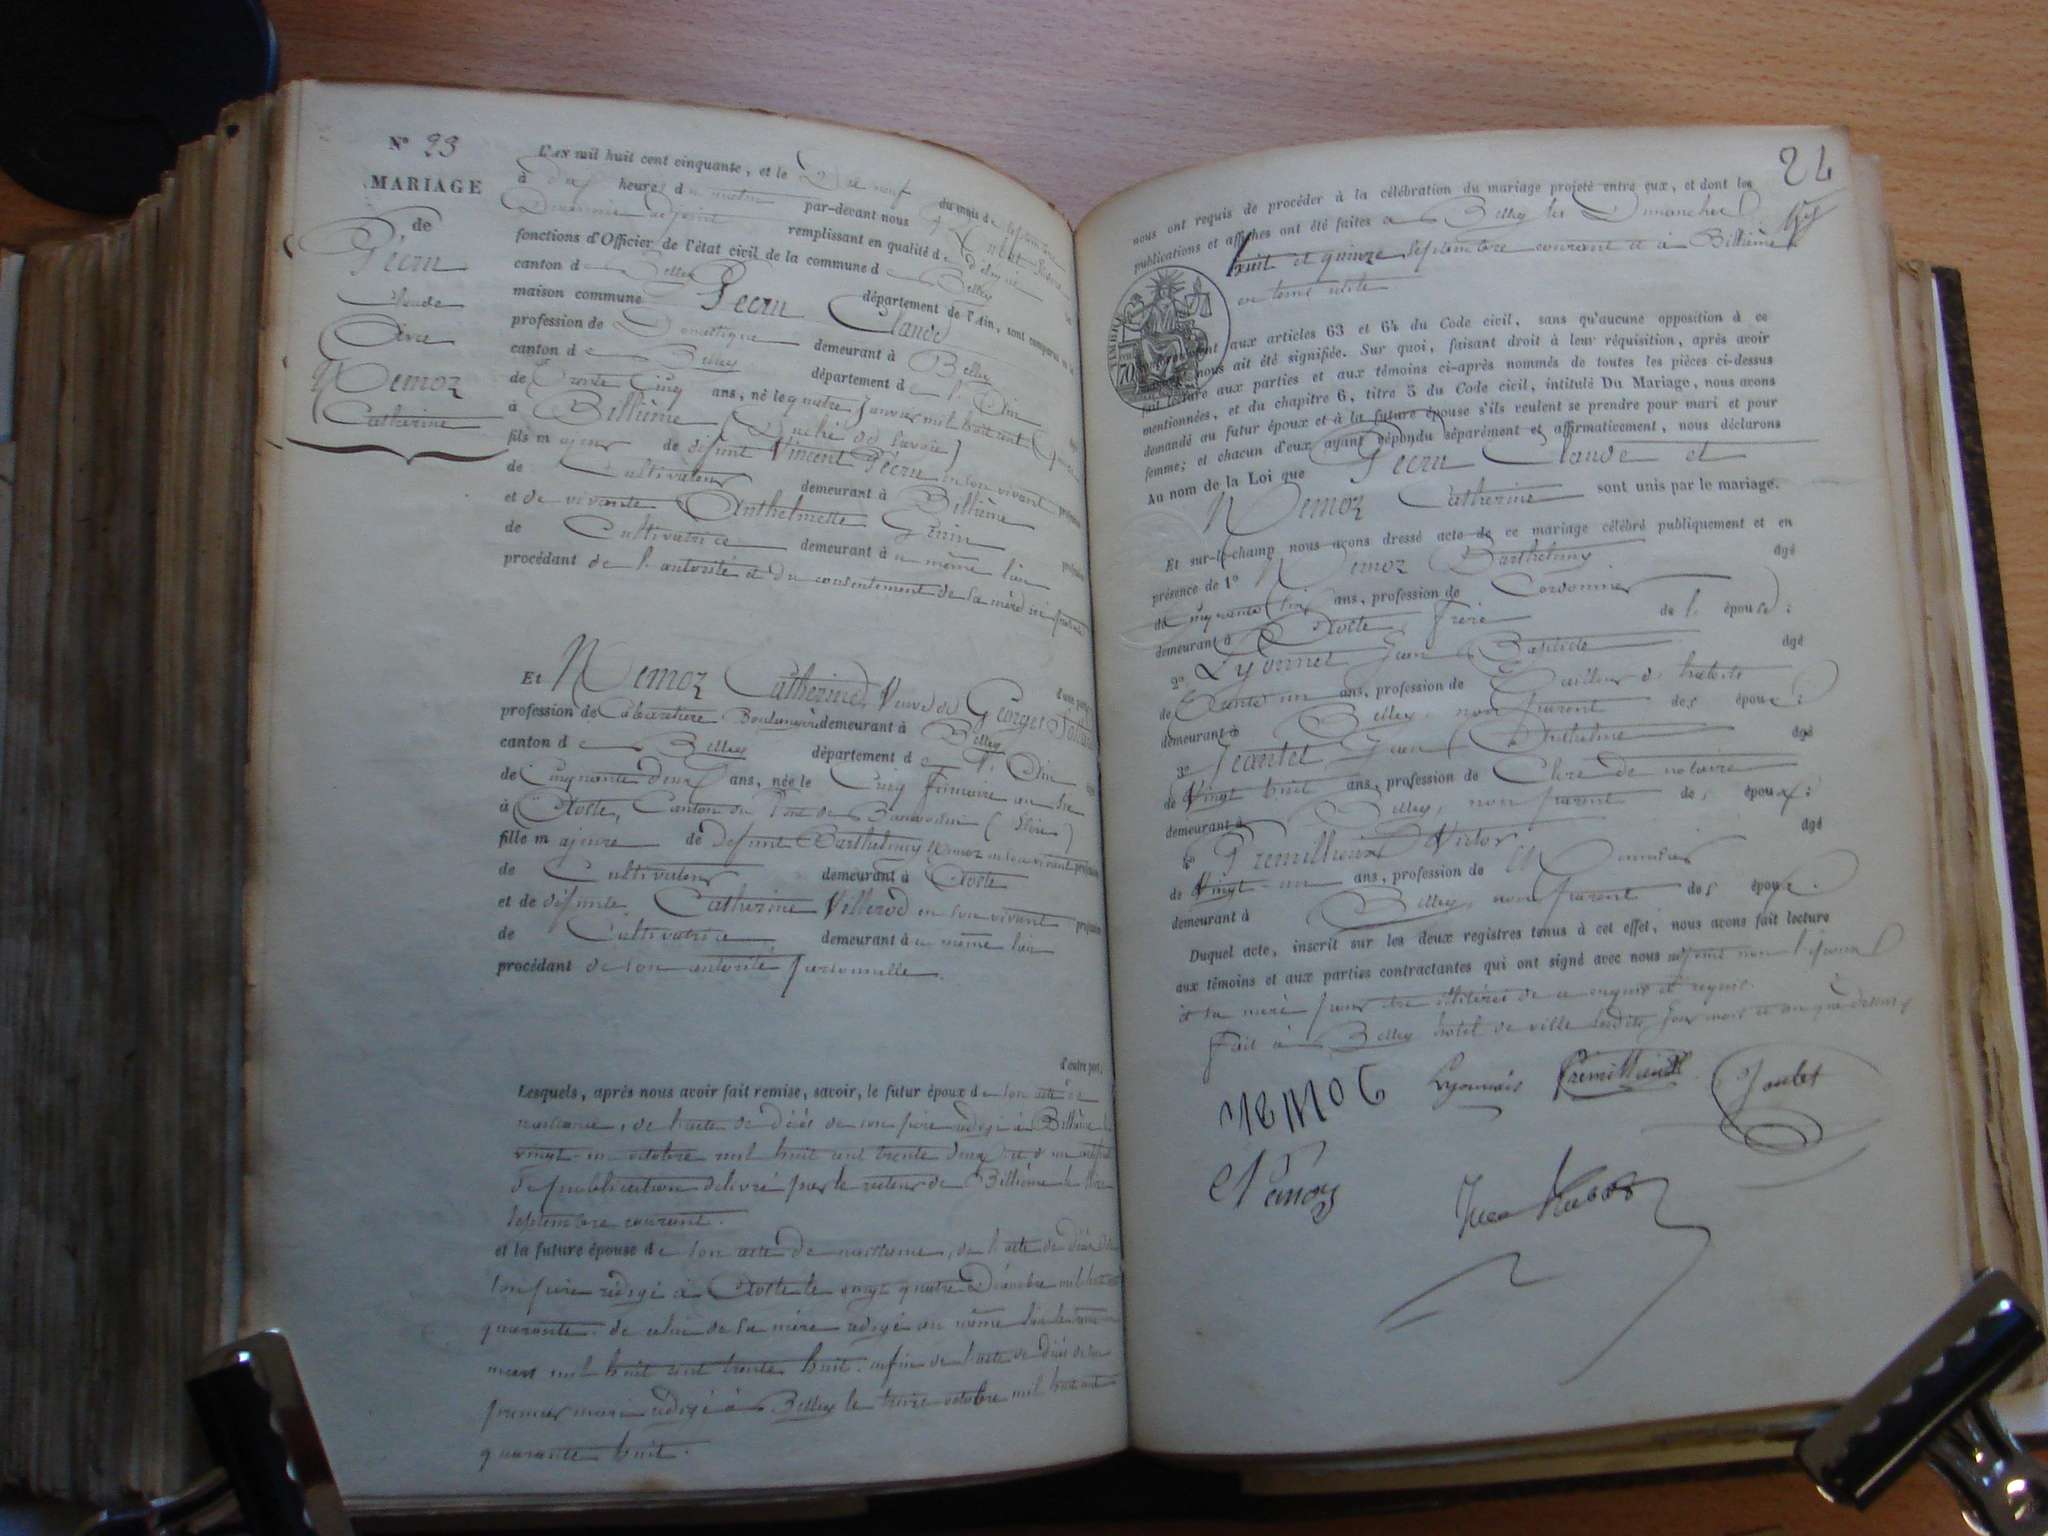 N° 23
MARIAGE
de
Pécru
Claude
Avec
Nemoz
Catherine
L'an mil huit cent cinquante, et le Dix neuf du mois de septembre
à Dix heures du matin par-devant nous
adjoint remplissant en qualité de délégué
fonctions d'Officier de l'état civil de la commune de Belley
canton de Belley département de l'Ain, sont comparus en la
maison commune Pécru Claude
profession de Domestique demeurant à Belley
canton de Belley département de l'Ain
de Trente Cinq ans, né le quatre Janvier mil huit cent quinze
à Billième (Duché de Savoie)
fils majeur de défunt Vincent Pécru en son vivant profession
de Cultivateur demeurant à Billième
et de vivante Anthelmette Grin profession
de Cultivatrice demeurant au même lieu
procédant de l'autorité et du consentement de sa mère ici présente
d'une part;
Et Nemoz Catherine, Veuve de Georges
profession de Cabaretière Boulangère demeurant à Belley
canton de Belley département de l'Ain
de Cinquante deux ans, née le Cinq frimaire an
à Aoste, Canton du Pont de Beauvoisin (Isère)
fille majeure de défunt Barthélemy Nemoz en son vivant profession
de Cultivateur demeurant à Aoste
et de défunte Catherine Villerod en son vivant profession
de Cultivatrice demeurant au même lieu
procédant de son autorité personnelle.
d'autre part.
Lesquels, après nous avoir fait remise, savoir, le futur époux de son acte de
naissance, de l'acte de décès de son père rédigé à Billième le
vingt-un octobre mil huit cent trente deux et d'un certificat
de publication délivré par le recteur de Billième le
septembre courant.
et la future épouse de son acte de naissance, de l'acte de décès de
son père rédigé à Aoste le vingt quatre Décembre mil huit cent
quarante. de celui de sa mère rédigé au même lieu le
mars mil huit cent trente huit. enfin de l'acte de décès de son
premier mari rédigé à Belley le treize octobre mil huit cent
quarante huit.
24
nous ont requis de procéder à la célébration du mariage projeté entre eux, et dont les
publications et affiches ont été faites à Belley les Dimanches
huit et quinze septembre courant et à Billième
en tems utile
TIMBRE
70
conformément aux articles 63 et 64 du Code civil, sans qu'aucune opposition à ce
mariage nous ait été signifiée. Sur quoi, faisant droit à leur réquisition, après avoir
fait lecture aux parties et aux témoins ci-après nommés de toutes les pièces ci-dessus
mentionnées, et du chapitre 6, titre 5 du Code civil, intitulé Du Mariage, nous avons
demandé au futur époux et à la future épouse s'ils veulent se prendre pour mari et pour
femme; et chacun d'eux ayant répondu séparément et affirmativement, nous déclarons
Au nom de la Loi que Pécru Claude et
Nemoz Catherine sont unis par le mariage.
Et sur-le-champ nous avons dressé acte de ce mariage célébré publiquement et en
présence de 1° Nemoz Barthélemy âgé
de Cinquante Six ans, profession de Cordonnier
demeurant à Aoste, frère de l'épouse;
2° Lyonnet Jean Baptiste âgé
de Trente un ans, profession de Tailleur d'habits
demeurant à Belley, non parent des époux;
3° Jeantet, Jean Anthelme âgé
de Vingt huit ans, profession de Clerc de notaire
demeurant à Belley, non parent des époux;
4° Premillieux Victor âgé
de Vingt-un ans, profession de Menuisier
demeurant à Belley, non parent des époux.
Duquel acte, inscrit sur les deux registres tenus à cet effet, nous avons fait lecture
aux témoins et aux parties contractantes qui ont signé avec nous adjoint non l'époux
et sa mère pour être illitérés de ce enquis et requis.
Fait à Belley hôtel de ville lesdits jour mois et an que dessus
nemoz Lyonnais Premillieux
Nemoz